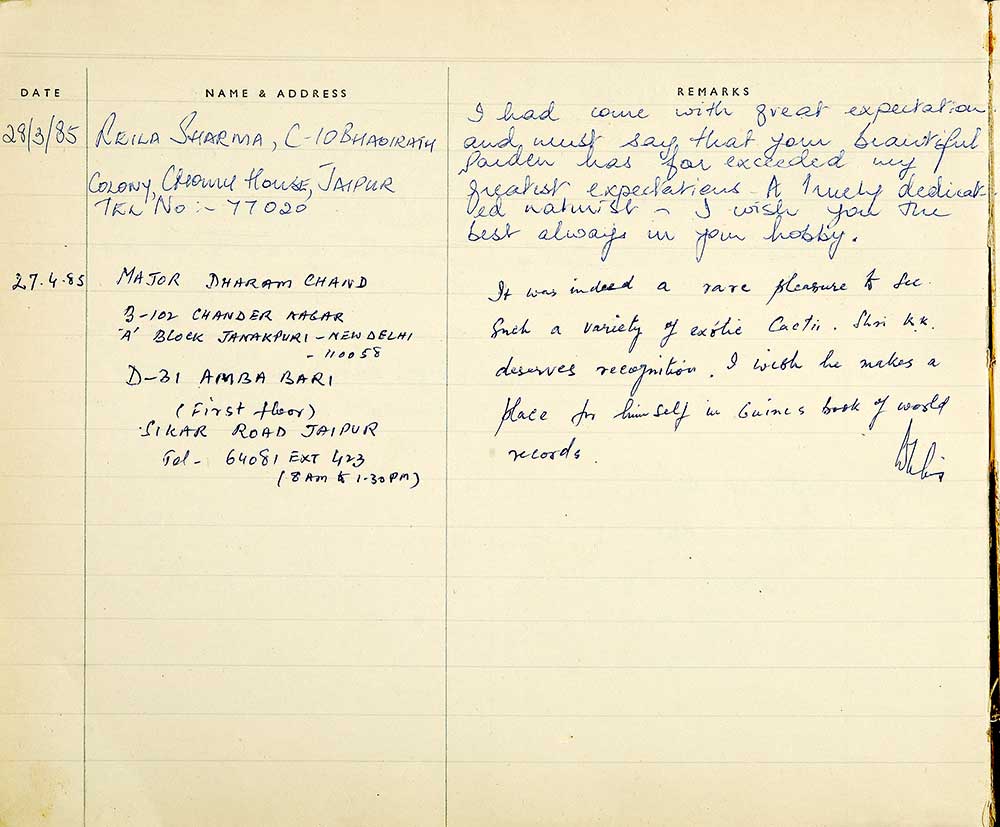 DATE NAME & ADDRESS REMARKS
28/3/85 REILA SHARMA, C-10 BHAGIRATH
COLONY, CHOMU HOUSE, JAIPUR
TEL NO:- 77020
I had come with great expectation
and must say that your beautiful
Garden has far exceeded my
greatest expectations - A Truely dedicat-
ed naturist - I wish you the
best always in your hobby.
27.4.85 MAJOR DHARAM CHAND
B-102 CHANDER NAGAR
'A' BLOCK JANAKPURI - NEW DELHI
- 110058
D-31 AMBA BARI
(First floor)
SIKAR ROAD JAIPUR
Tel- 64081 EXT 423
(8 AM to 1-30 PM)
It was indeed a rare pleasure to see
Such a variety of exotic Cactii. Shri KK.
deserves recognition. I wish he makes a
place for himself in Guines book of world
records.